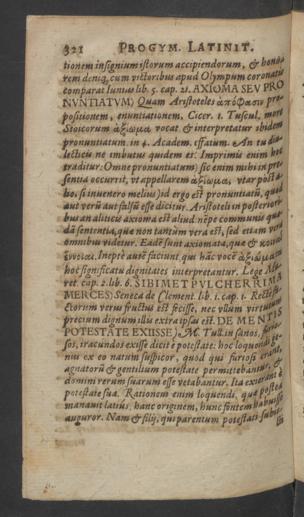 321 PROGYM. LATINIT.
tionem insignium istorum accipiendorum, & hono-
rem deniq; cum victoribus apud Olympum coronatis
comparat Iunius lib. 5. cap. 21. AXIOMA SEV PRO
NVNTIATVM) Quam Aristoteles ἀπόφασιν pro-
positionem, enuntiationem, Cicer. 1. Tuscul, more
Stoicorum ἀξίωμα vocat & interpretatur ibidem
pronuntiatum. in 4. Academ. effatum. An tu dia-
lecticis ne imbutus quidem es? Imprimis enim hoc
traditur: Omne pronuntiatum (sic enim mihi in pre-
sentia occurrit, vt appellarem ἀξίωμα, vtar post a-
lio, si invenero melius) id ergo est pronuntiatū, quod
aut verū aut falsū esse dicitur. Aristoteli in posteriori-
bus analiticis axioma est aliud nēpe communis quæ-
dā sententia, quæ non tantùm vera est, sed etiam vera
omnibus videtur. Eadē sunt axiomata, quæ & κοιναὶ
ἔννοιαι. Ineptè autē faciunt qui hāc vocē ἀξίωμα
hoc significatu dignitates interpretantur. Lege
ret. cap. 2. lib. 6. SIBIMET PVLCHERRIMA
MERCES) Seneca de Clement. lib. 1. cap. 1. Rectè
ctorum verus fructus est fecisse, nec vllum virtutum
precium dignum illis extra ipsas est. DE MENTIS
POTESTATE EXIISSE) M. Tull. in sanos, furio-
sos, iracundos exisse dicit è potestate: hoc loquendi ge-
nus ex eo natum suspicor, quod qui furiosi erant,
agnatorū & gentilium potestate permittebantur, &
domini rerum suarum esse vetabantur. Ita exierant è
potestate sua. Rationem enim loquendi, quæ postea
manavit latiùs, hanc originem, hunc fontem habuisse
auguror. Nam & filij, qui parentum potestati